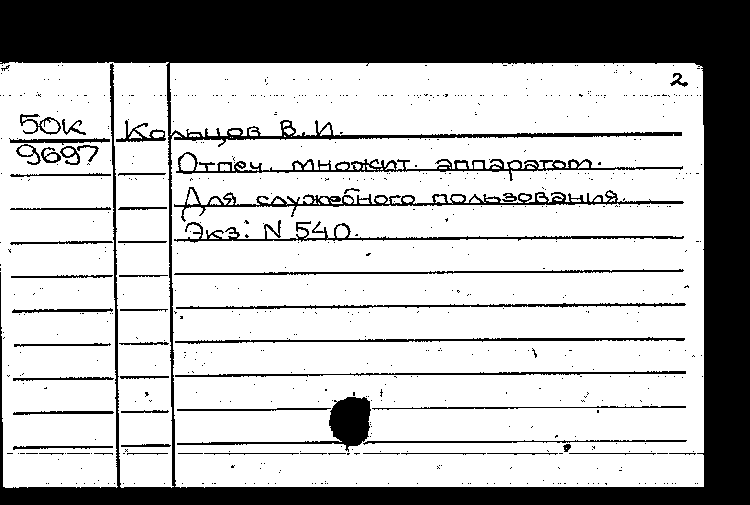 2
50К Кольцов В.И.
9697 Отпеч. множит. аппаратом.
Для служебного пользования.
Экз: N 540.